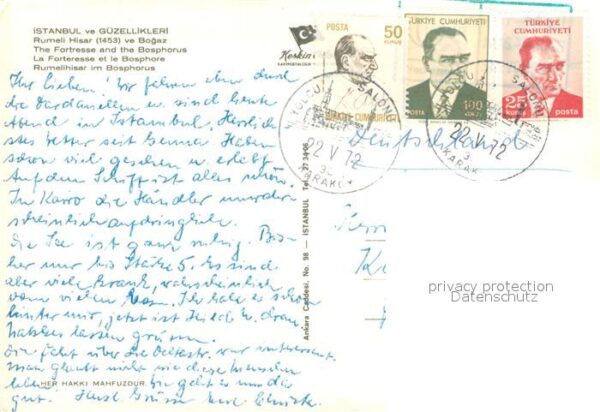 İSTANBUL ve GÜZELLİKLERİ
Rumeli Hisar (1453) ve Boğaz
The Fortresse and the Bosphorus
La Forteresse et le Bosphore
Rumelihisar im Bosphorus
Ihr Lieben! Wir fahren eben durch
die Dardanellen u. sind heute
Abend in Istanbul. Herrlich
stes Wetter seit Genua. Haben
schon viel gesehen u. erlebt
Auf dem Schiff ist alles schön.
In Kairo die Händler
aufdringlich.
Die See ist ganz ruhig. Bis
her nur bis Stärke 5. Es sind
aber viele krank, wahrscheinlich
vom vielen Ich habe es schon
hinter mir, jetzt ist dran
lassen grüssen.
Die Fahrt über die war interessant.
Man glaubt nicht wie diese Menschen
leben. geht es uns
gut! Herzl. Grüsse
HER HAKKI MAHFUZDUR
Keskin
Ankara Caddesi, No. 98 — İSTANBUL Tel. 27 34 06
POSTA
50
KURUŞ
TÜRKİYE CUMHURİYETİ
TÜRKİYE CUMHURİYETİ
POSTA
100
TÜRKİYE
CUMHURİYETİ
25
KURUŞ
posta
YOLCU SALONU
22 V 72
KARAKÖY
YOLCU SALONU
22 V 72
KARAKÖY
Deutschland
privacy protection
Datenschutz